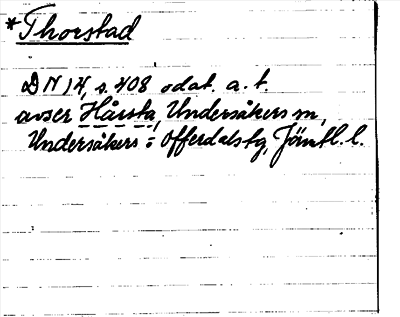 *Thorstad
DN 14, s. 408 odat. a. t.
avser Hårsta, Undersåkers sn,
Undersåkers = Offerdals tg, Jämtl. l.